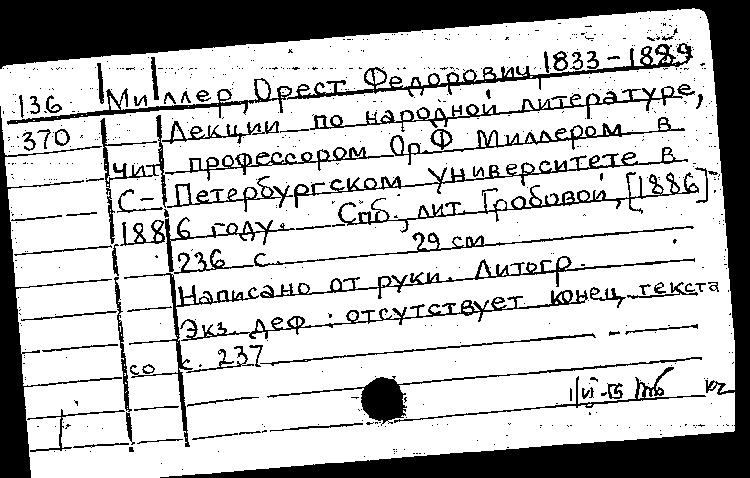 136 Миллер, Орест Федорович, 1833-1889.
370 Лекции по народной литературе,
чит профессором Ор.Ф Миллером в
С-Петербургском университете в
1886 году. Спб., лит. Гробовой, [1886]
236 с. 29 см
Написано от руки. Литогр.
Экз. деф : отсутствует конец текста
со с. 237